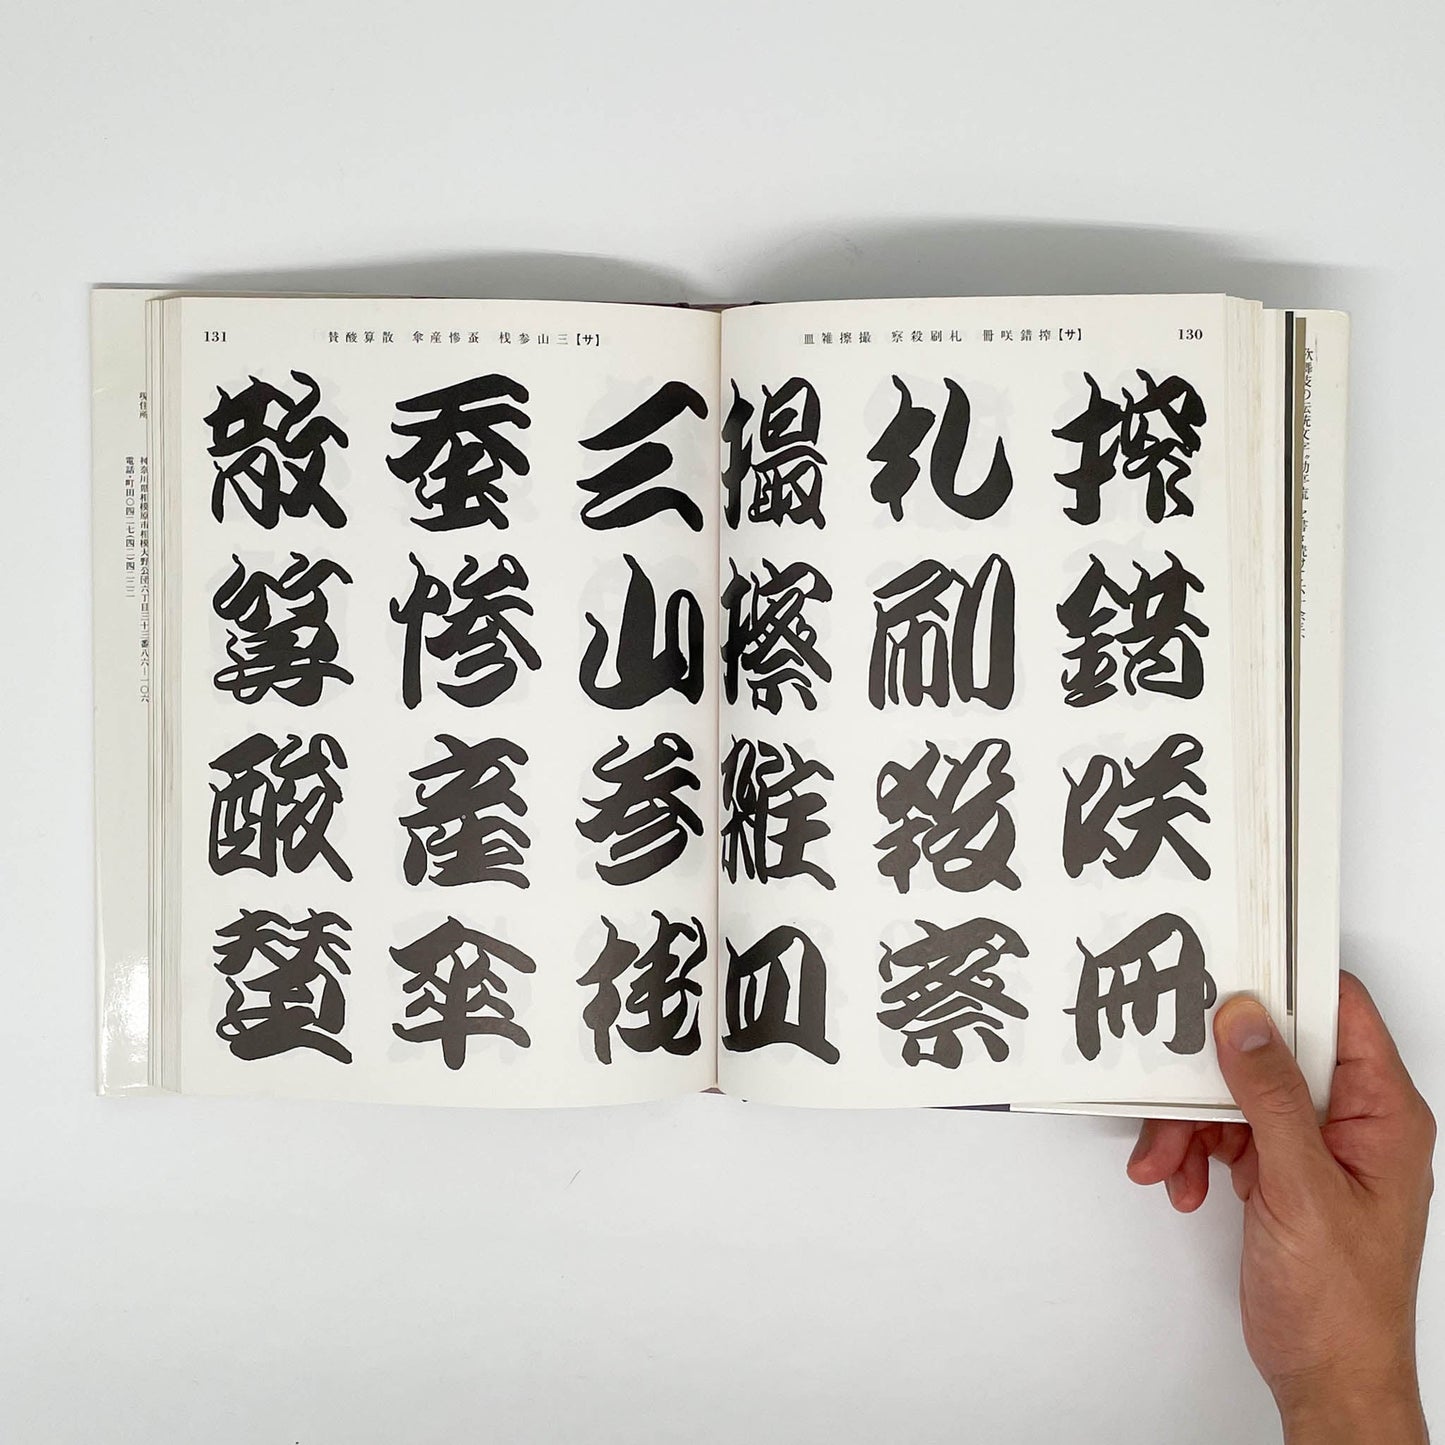 130
【サ】搾錯咲冊 札刷殺察 撮擦雑皿
搾錯咲冊
札刷殺察
撮擦雑皿
131
【サ】三山参桟 蚕惨産傘 散算酸賛
三山参桟
蚕惨産傘
散算酸賛
現住所
神奈川県相模原市相模大野公団六丁目三十三番八六―一〇六
電話・町田〇四二七(四二)四二二二
歌舞伎の伝統文字〝勘亭流